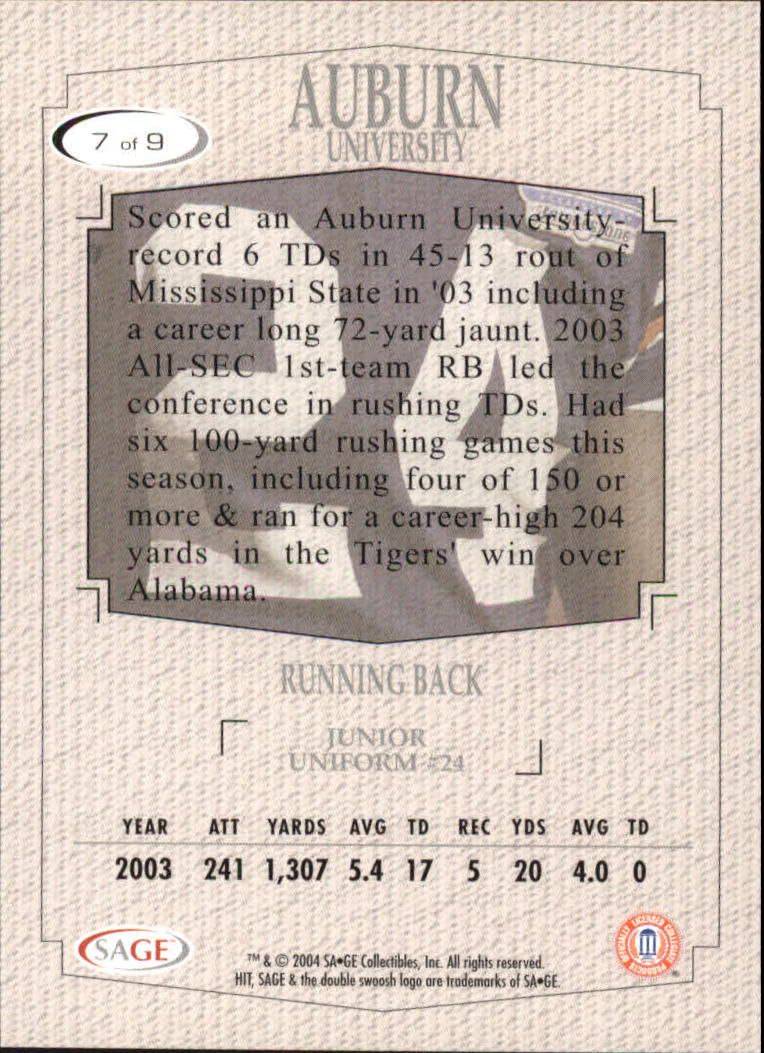 AUBURN
UNIVERSITY
7 of 9
Scored an Auburn University-
record 6 TDs in 45-13 rout of
Mississippi State in '03 including
a career long 72-yard jaunt. 2003
All-SEC 1st-team RB led the
conference in rushing TDs. Had
six 100-yard rushing games this
season, including four of 150 or
more & ran for a career-high 204
yards in the Tigers' win over
Alabama.
RUNNING BACK
JUNIOR
UNIFORM #24
YEAR ATT YARDS AVG TD REC YDS AVG TD
2003 241 1,307 5.4 17 5 20 4.0 0
SAGE
OFFICIALLY LICENSED COLLEGIATE PRODUCTS
™ & © 2004 SA•GE Collectibles, Inc. All rights reserved.
HIT, SAGE & the double swoosh logo are trademarks of SA•GE.